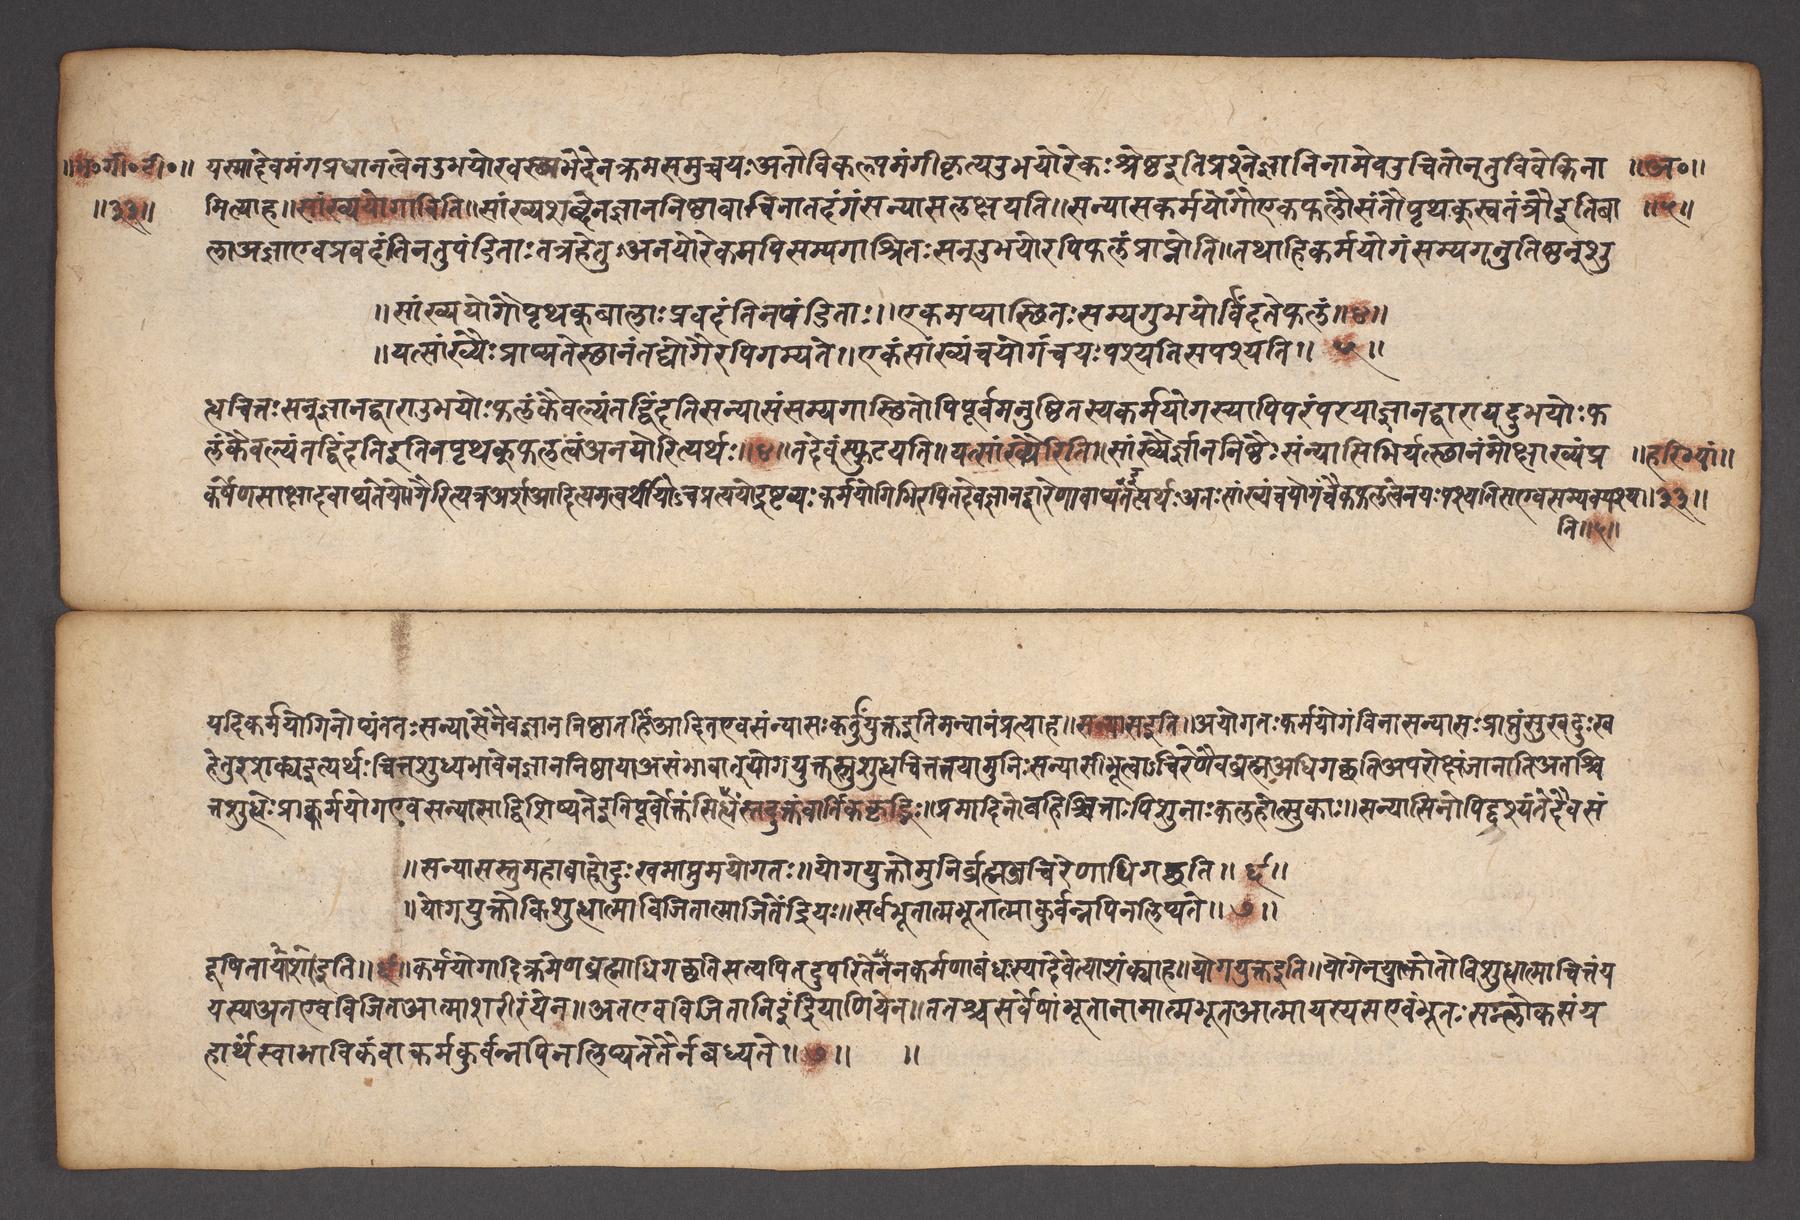 ॥भ०गी०टी०॥ यस्मादेवमंगप्रधानत्वेनउभयोरवस्थाभेदेनक्रमसमुच्चयःअतोविकल्पमंगीकृत्यउभयोरेकःश्रेष्ठइतिप्रश्नोज्ञानिनामेवउचितोन्नतुविवेकिना ॥अ०॥
॥३३॥ मित्याह॥सांख्ययोगाविति॥सांख्यशब्देनज्ञाननिष्ठावाचिनातदंगंसन्यासलक्षयति॥सन्यासकर्मयोगौएकफलौसंतौपृथक्स्वतंत्रौइतिबा ॥५॥
लाअज्ञाएवप्रवदंतिनतुपंडिताःतत्रहेतुःअनयोरेकमपिसम्यगाश्रितःसन्उभयोरपिफलंप्राप्नोति।तथाहिकर्मयोगंसम्यगनुतिष्ठन्शु
॥सांख्ययोगौपृथक्बालाःप्रवदंतिनपंडिताः॥एकमप्यास्छितःसम्यगुभयोर्विंदतेफलं॥४॥
॥यत्सांख्यैःप्राप्यतेस्छानंतद्योगैरपिगम्यते॥एकंसांख्यंचयोगंचयःपश्यतिसपश्यति॥५॥
त्धचित्तःसन्ज्ञानद्वाराउभयोःफलंकैवल्यंतद्विंदतिसन्यासंसम्यगास्छितोपिपूर्वमनुष्ठितस्यकर्मयोगस्यापिपरंपरयाज्ञानद्वारायदुभयोःफ
लंकैवल्यंतद्विंदतिइतिनपृथक्फलत्वंअनयोरित्यर्थः॥४॥तदेवंस्फुटयति॥यत्सांख्यैरिति॥सांख्यैर्ज्ञाननिष्ठैःसंन्यासिभिर्यत्स्छानंमोक्षाख्यंप्र ॥हरिभ्यां॥
कर्षेणसाक्षादवाप्यतेयोगैरित्यत्रअर्शआदित्यमत्वर्थीयोच्प्रत्ययोद्रष्टव्यःकर्मयोगिभिरपितदेवज्ञानद्वारेणावाप्यतेइत्यर्थःअतःसांख्यंचयोगंचैकफलत्वेनयःपश्यतिसएवसम्यक्पश्य॥३३॥
ति॥५॥
यदिकर्मयोगिनोप्यंततःसन्यासेनैवज्ञाननिष्ठातर्हिआदितएवसंन्यासःकर्तुंयुक्तइतिमन्वानंप्रत्याह॥सन्यासइति॥अयोगतःकर्मयोगंविनासन्यासःप्राप्तुंसुखदुःख
हेतुरशक्यइत्यर्थःचित्तशुध्यभावेनज्ञाननिष्ठायाअसंभावात्योगयुक्तस्तुशुत्धचित्ततयामुनिःसन्यासीभूत्वाऽचिरेणैवब्रह्मअधिगच्छतिअपरोक्षंजानातिअतश्चि
त्तशुद्धेःप्राक्कर्मयोगएवसन्यासाद्विशिष्यतेइतिपूर्वोक्तंसित्धंस्तदुक्तंवार्तिककृद्भिः॥प्रमादिनोबहिश्चित्ताःपिशुनाःकलहोत्सुकाः॥सन्यासिनोपिदृश्यंतेदैवसं
॥सन्यासस्तुमहाबाहोदुःखमाप्तुमयोगतः॥योगयुक्तोमुनिर्ब्रह्मनचिरेणाधिगच्छति॥६॥
॥योगयुक्तोविशुत्धात्माविजितात्माजितेंद्रियः॥सर्वभूतात्मभूतात्माकुर्वन्नपिनलिप्यते॥७॥
दूषिताशयाइति॥६॥कर्मयोगादिक्रमेणब्रह्माधिगच्छतिसत्यपितदुपरितेनकर्मणाबंधःस्यादेवेत्याशंक्याह॥योगयुक्तइति॥योगेनयुक्तोतोविशुत्धात्माचित्तंय
यस्यअतएवविजितआत्माशरीरंयेन॥अतएवविजितानिइंद्रियाणियेन॥ततश्चसर्वेषांभूतानामात्मभूतआत्मायस्यसएवंभूतःसल्लोकसंग्र
हार्थंस्वाभाविकंवाकर्मकुर्वन्नपिनलिप्यतेतैर्नबध्यते॥७॥ ॥